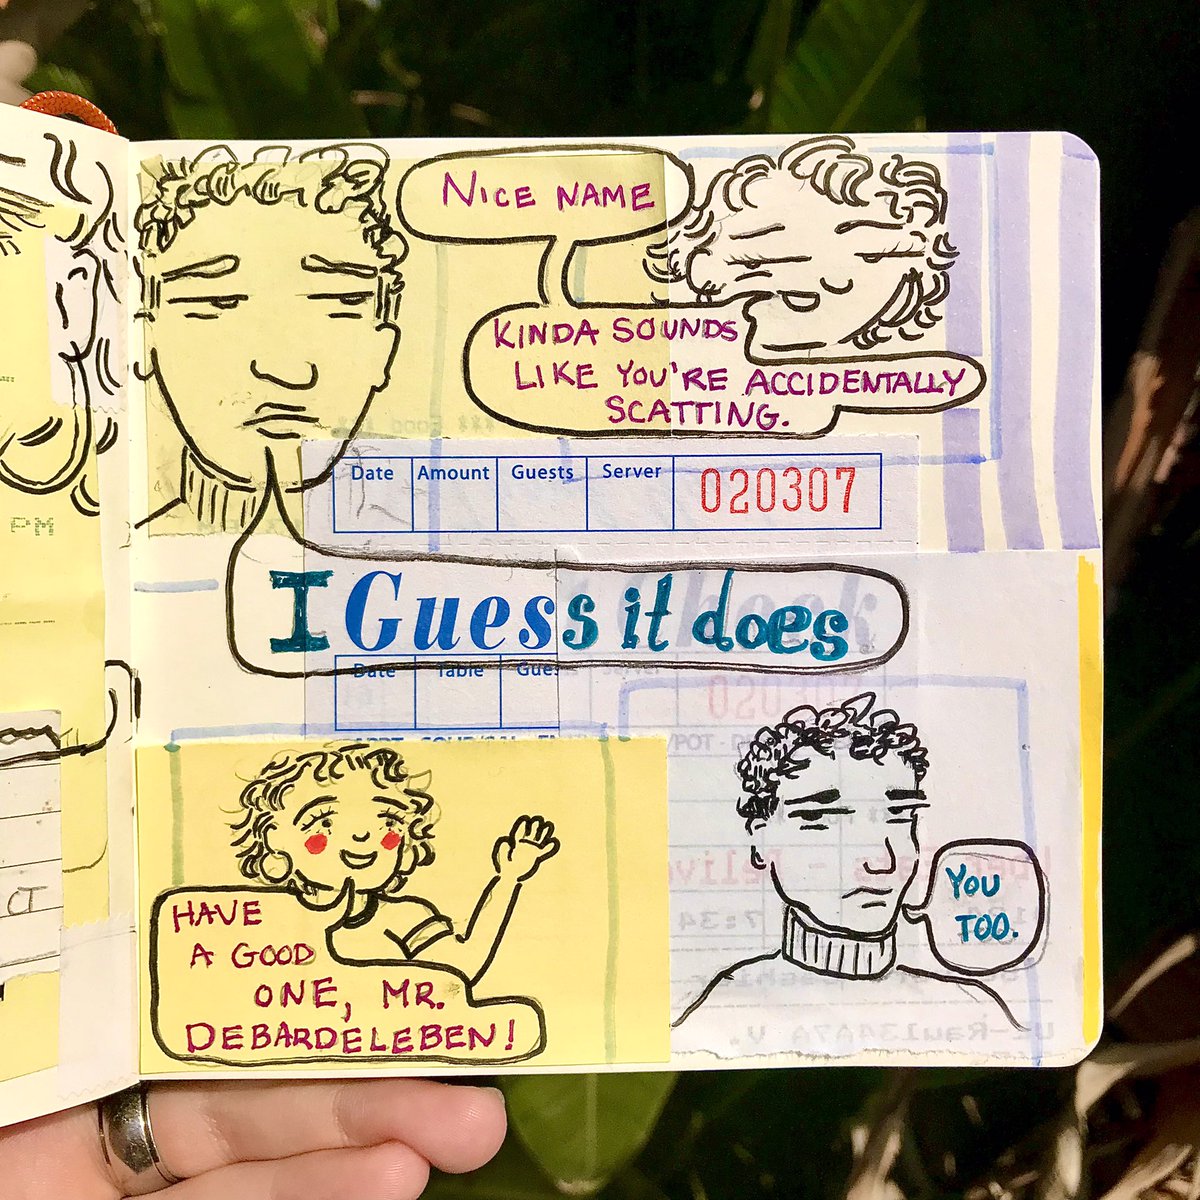 NICE NAME
KINDA SOUNDS
LIKE YOU'RE ACCIDENTALLY
SCATTING.
Date Amount Guests Server 020307
I Guess it does
Date Table Gues
HAVE
A GOOD
ONE, MR.
DEBARDELEBEN!
YOU
TOO.
PM
CT